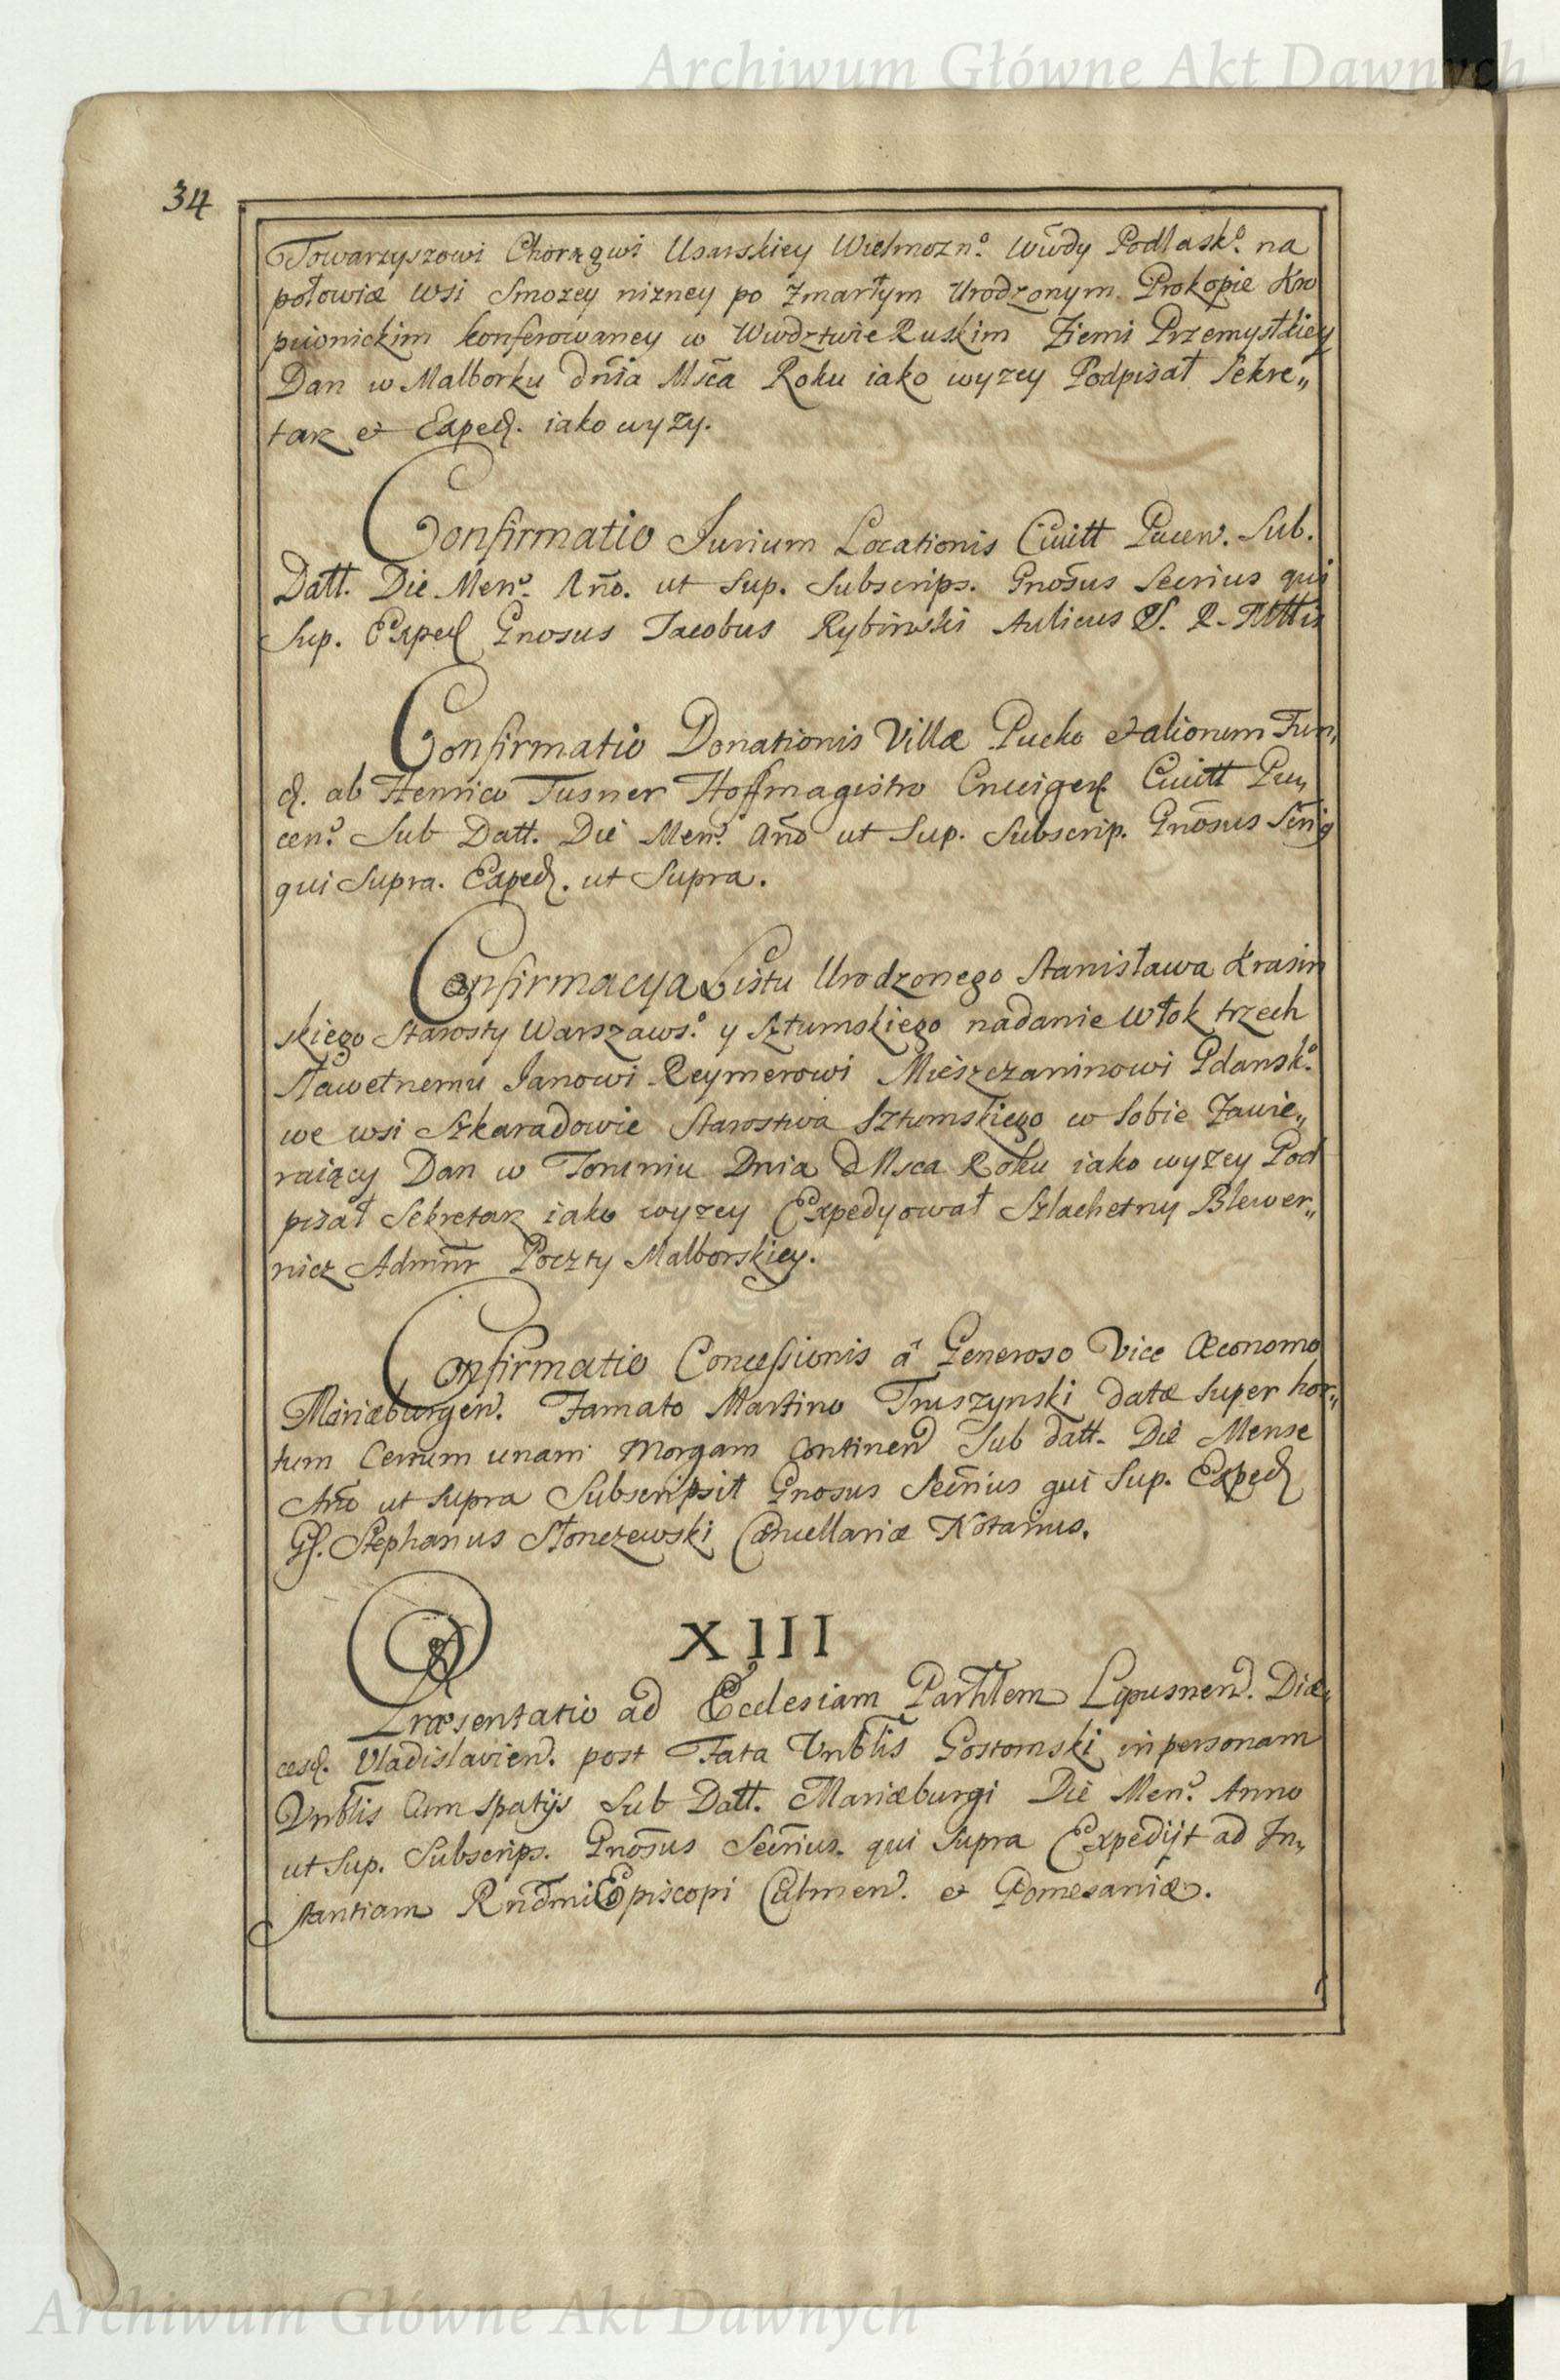 Archiwum Główne Akt Dawnych
34
Towarzyszowi Chorągwi Usarskiey Wielmozn.º Wwdy Podlask.º na
połowiæ wsi Smozey nizney po Zmarłym Urodzonym Prokopie Kro
pwonickim konferowaney w Wwdztwie Ruskim Ziemi Przemyskiey
Dan w Malborku dnia Msca Roku iako wyzey Podpisał Sekre„
tarz et Exped. iako wyzy.
Confirmatio Jurium Locationis Civitt Pucen. Sub.
Datt. Die Men. Año. ut Sup. Subscrips. Gnosus Secrius qui
Sup. Exped Gnosus Jacobus Rybinski Aulicus S. R. Mttis
Confirmatio Donationis Villæ Pucko et aliorum Fun„
d. ab Henrico Tusner Hoffmagistro Cruciger. Civitt Pu„
cen. Sub Datt. Die Men. Año ut Sup. Subscrip. Gnosus
qui Supra. Exped. ut Supra.
Confirmacya Listu Urodzonego Stanisława Krasin
skiego Starosty Warszaws.º y Sztumskiego nadanie Włok trzech
Sławetnemu Janowi Reymerowi Mieszczaninowi Gdansk.º
we wsi Szkaradowie Starostwa Sztumskiego w Sobie Zawie„
raiący Dan w Toruniu Dnia Msca Roku iako wyzey Pod
pisał Sekretarz iako wyzey Expedyował Szlachetny Blewer„
nicz Admnr Poczty Malborskiey.
Confirmatio Concessionis â Generoso Vice Œconomo
Mariæburgen. Famato Martino Truszynski datæ Super hor„
tum Certum unam Morgam Continen Sub datt. Die Mense
Año ut Supra Subscripsit Gnosus Secrius qui Sup. Exped
Gs. Stephanus Słonczewski Cancellariæ Notarius.
XIII
Præsentatio ad Ecclesiam Parchlem Lipusnen. Diæ„
cesis. Vladislavien. post Fata Vnblis Gostomski in personam
Vnblis Cum Spatijs Sub Datt. Mariæburgi Die Men. Anno
ut Sup. Subscrips. Gnosus Secrius. qui Supra Expedijt ad In„
stantiam Rndmi Episcopi Culmen. et Pomesaniæ.
Archiwum Główne Akt Dawnych